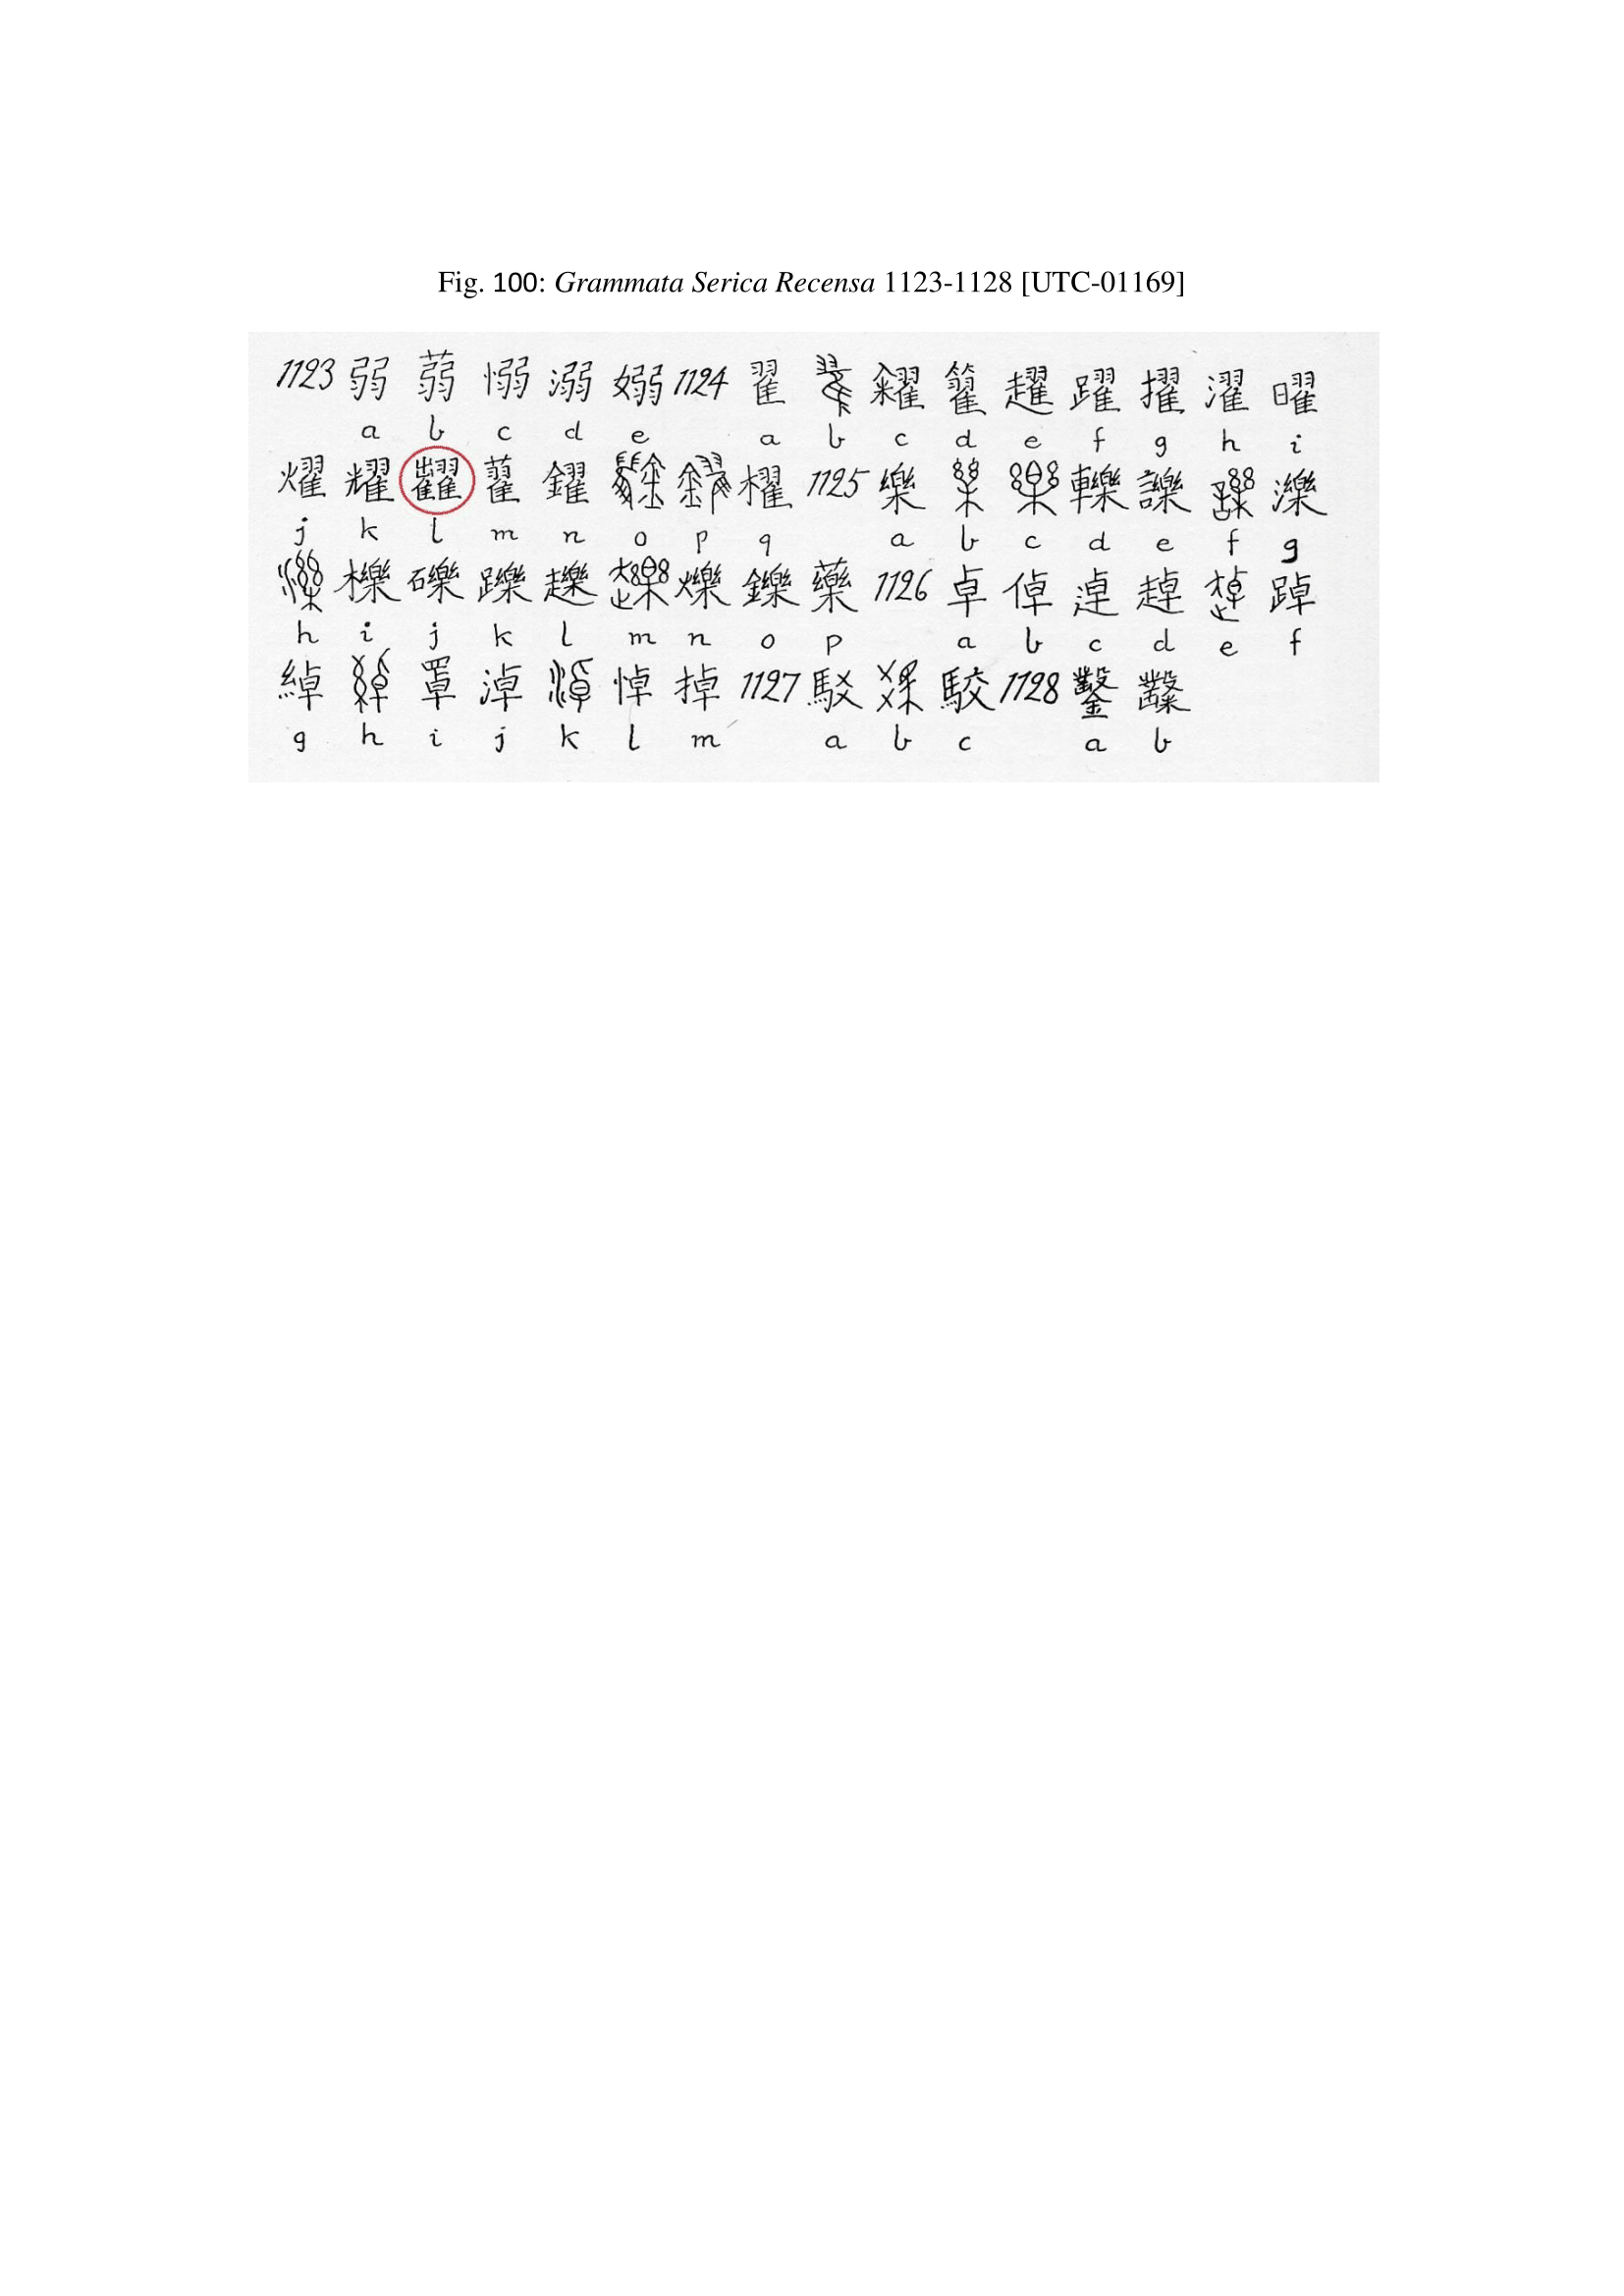 Fig. 100: Grammata Serica Recensa 1123-1128 [UTC-01169]
1123 弱 蒻 惄 溺 嫋 1124 翟 糴 籊 趯 躍 擢 濯 曜
a b c d e a b c d e f g h i
燿 耀 藋 鑃 櫂 1125 樂 轢 謔 濼
j k l m n o p q a b c d e f g
櫟 礫 躒 趮 爍 鑠 藥 1126 卓 倬 逴 趠 踔
h i j k l m n o p a b c d e f
綽 罩 淖 悼 掉 1127 駁 駮 1128 鑿 糳
g h i j k l m a b c a b